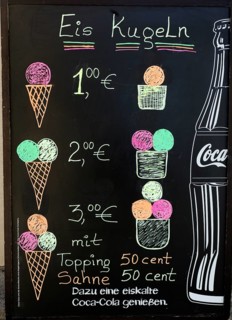 Eis Kugeln
1,00 €
2,00 €
3,00 €
mit
Topping 50 cent
Sahne 50 cent
Dazu eine eiskalte
Coca-Cola genießen.
Coca